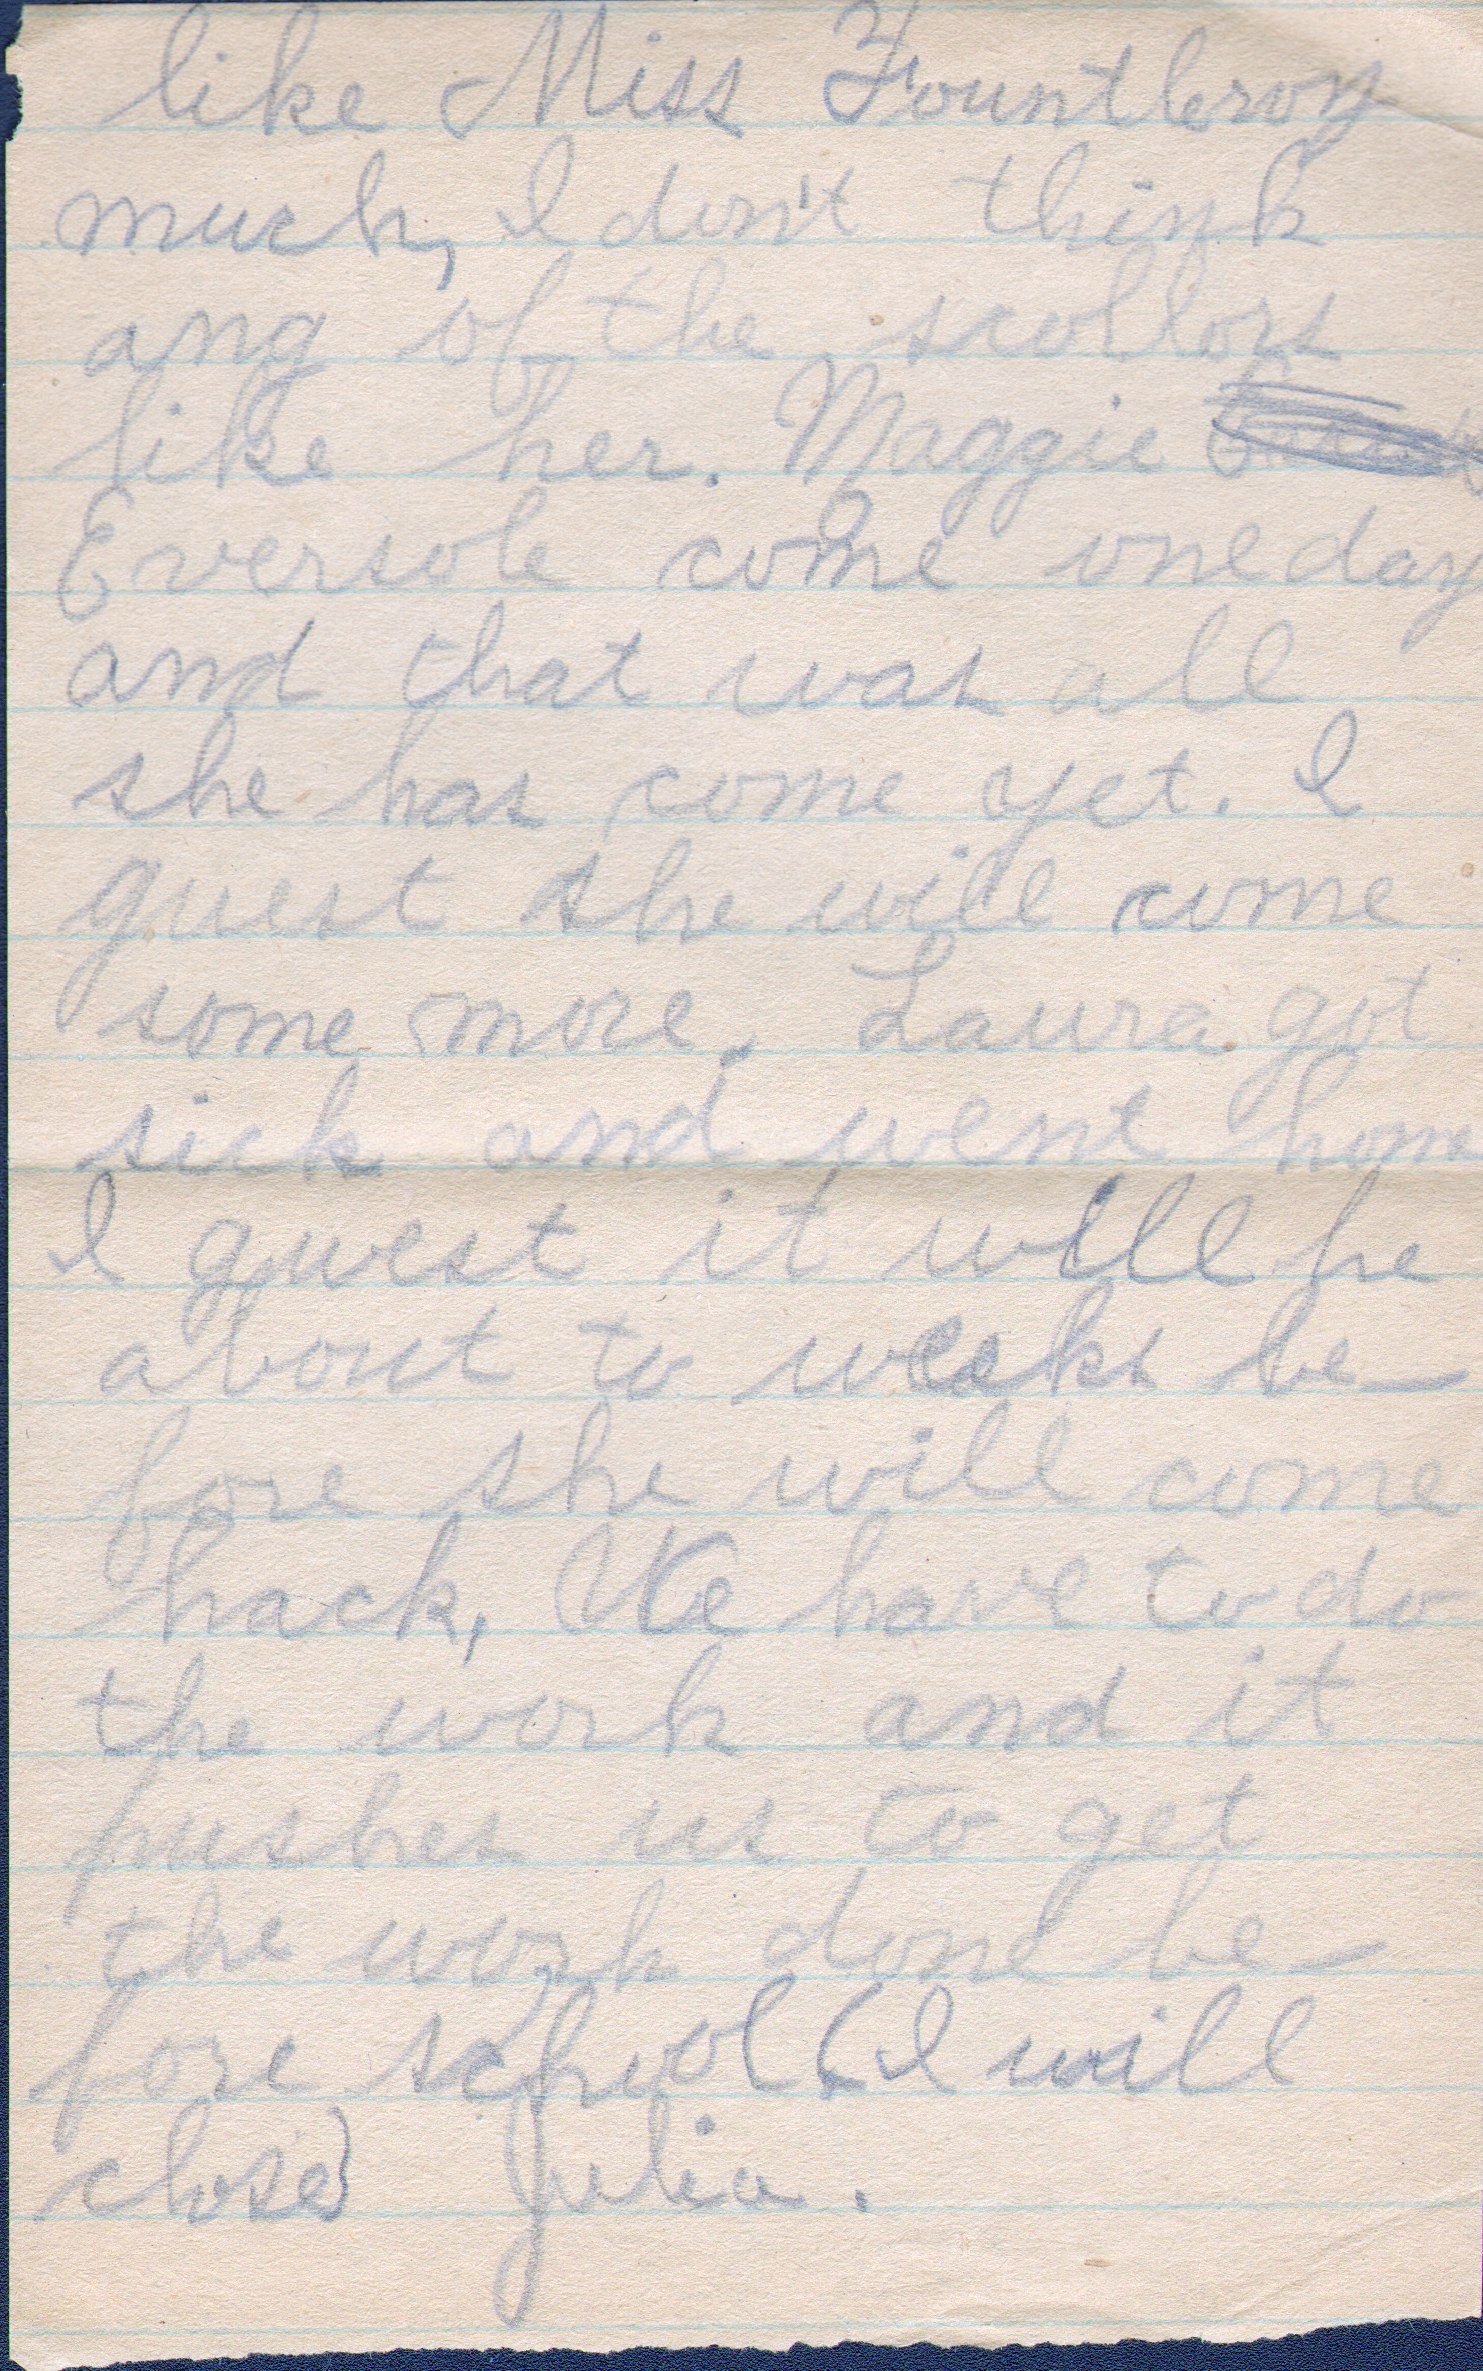 like Miss Fountleroy
much, I don't think
any of the scollors
like her. Maggie
Eversole come one day
and that was all
she has come yet. I
guest she will come
some more. Laura got
sick and went home
I guest it will be
about to weeks be-
fore she will come
back, We have to do
the work and it
pushes us to get
the work done be-
fore school (I will
close) Julia.